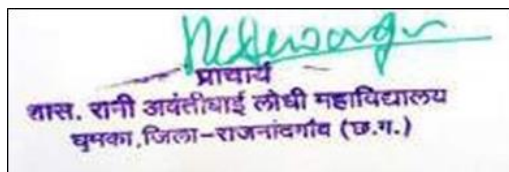 प्राचार्य
शास. रानी अवंतीबाई लोधी महाविद्यालय
घुमका,जिला-राजनांदगाँव (छ.ग.)